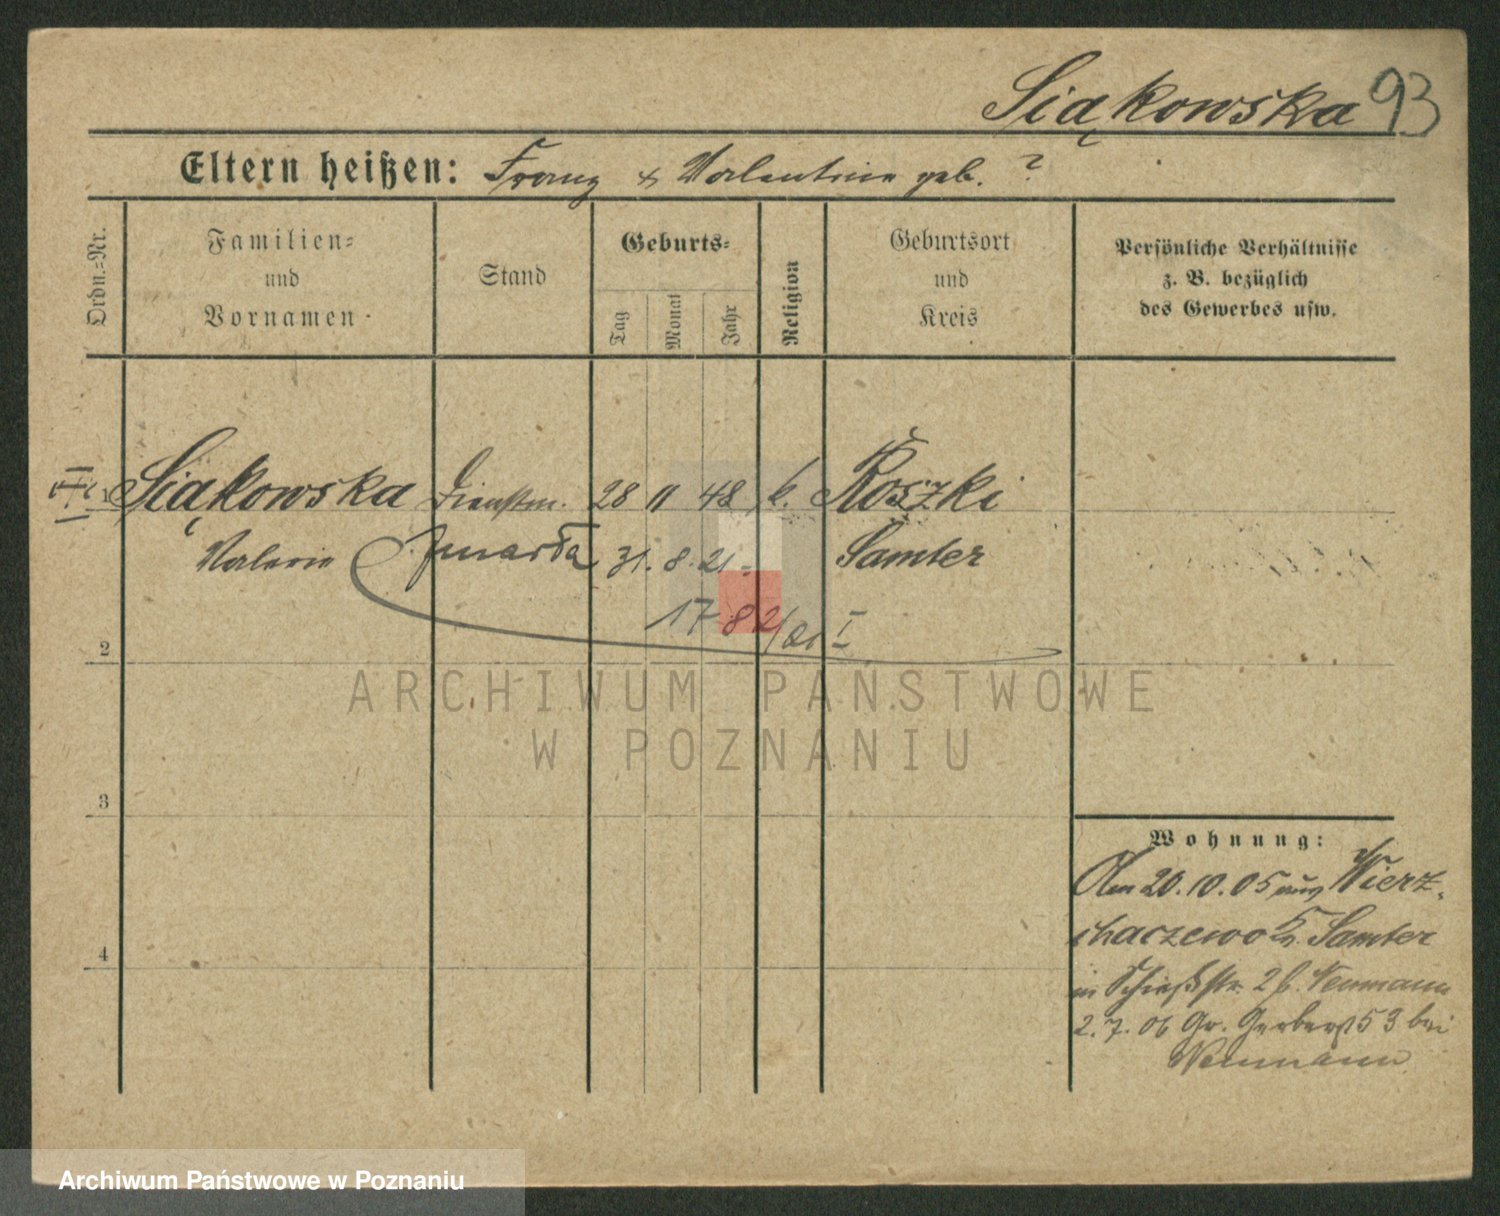 Siąkowska 93
Eltern heißen: Franz & Valentine geb. ?
Ordn.=Nr.
Familien=
und
Vornamen
Stand
Geburts=
Tag
Monat
Jahr
Religion
Geburtsort
und
Kreis
Persönliche Verhältnisse
z. B. bezüglich
des Gewerbes usw.
1 Siąkowska Dienstm. 28 11 48 k. Roszki
Valerie zmarła 31. 8. 21 Samter
1782/21 I
2
3
4
Wohnung:
Am 20.10.05 aus Wierz-
chaczewo K. Samter
in Schießstr. 2 b. Neumann
2.7.06 Gr. Gerberst 53 bei
Neumann
ARCHIWUM PAŃSTWOWE
W POZNANIU
Archiwum Państwowe w Poznaniu